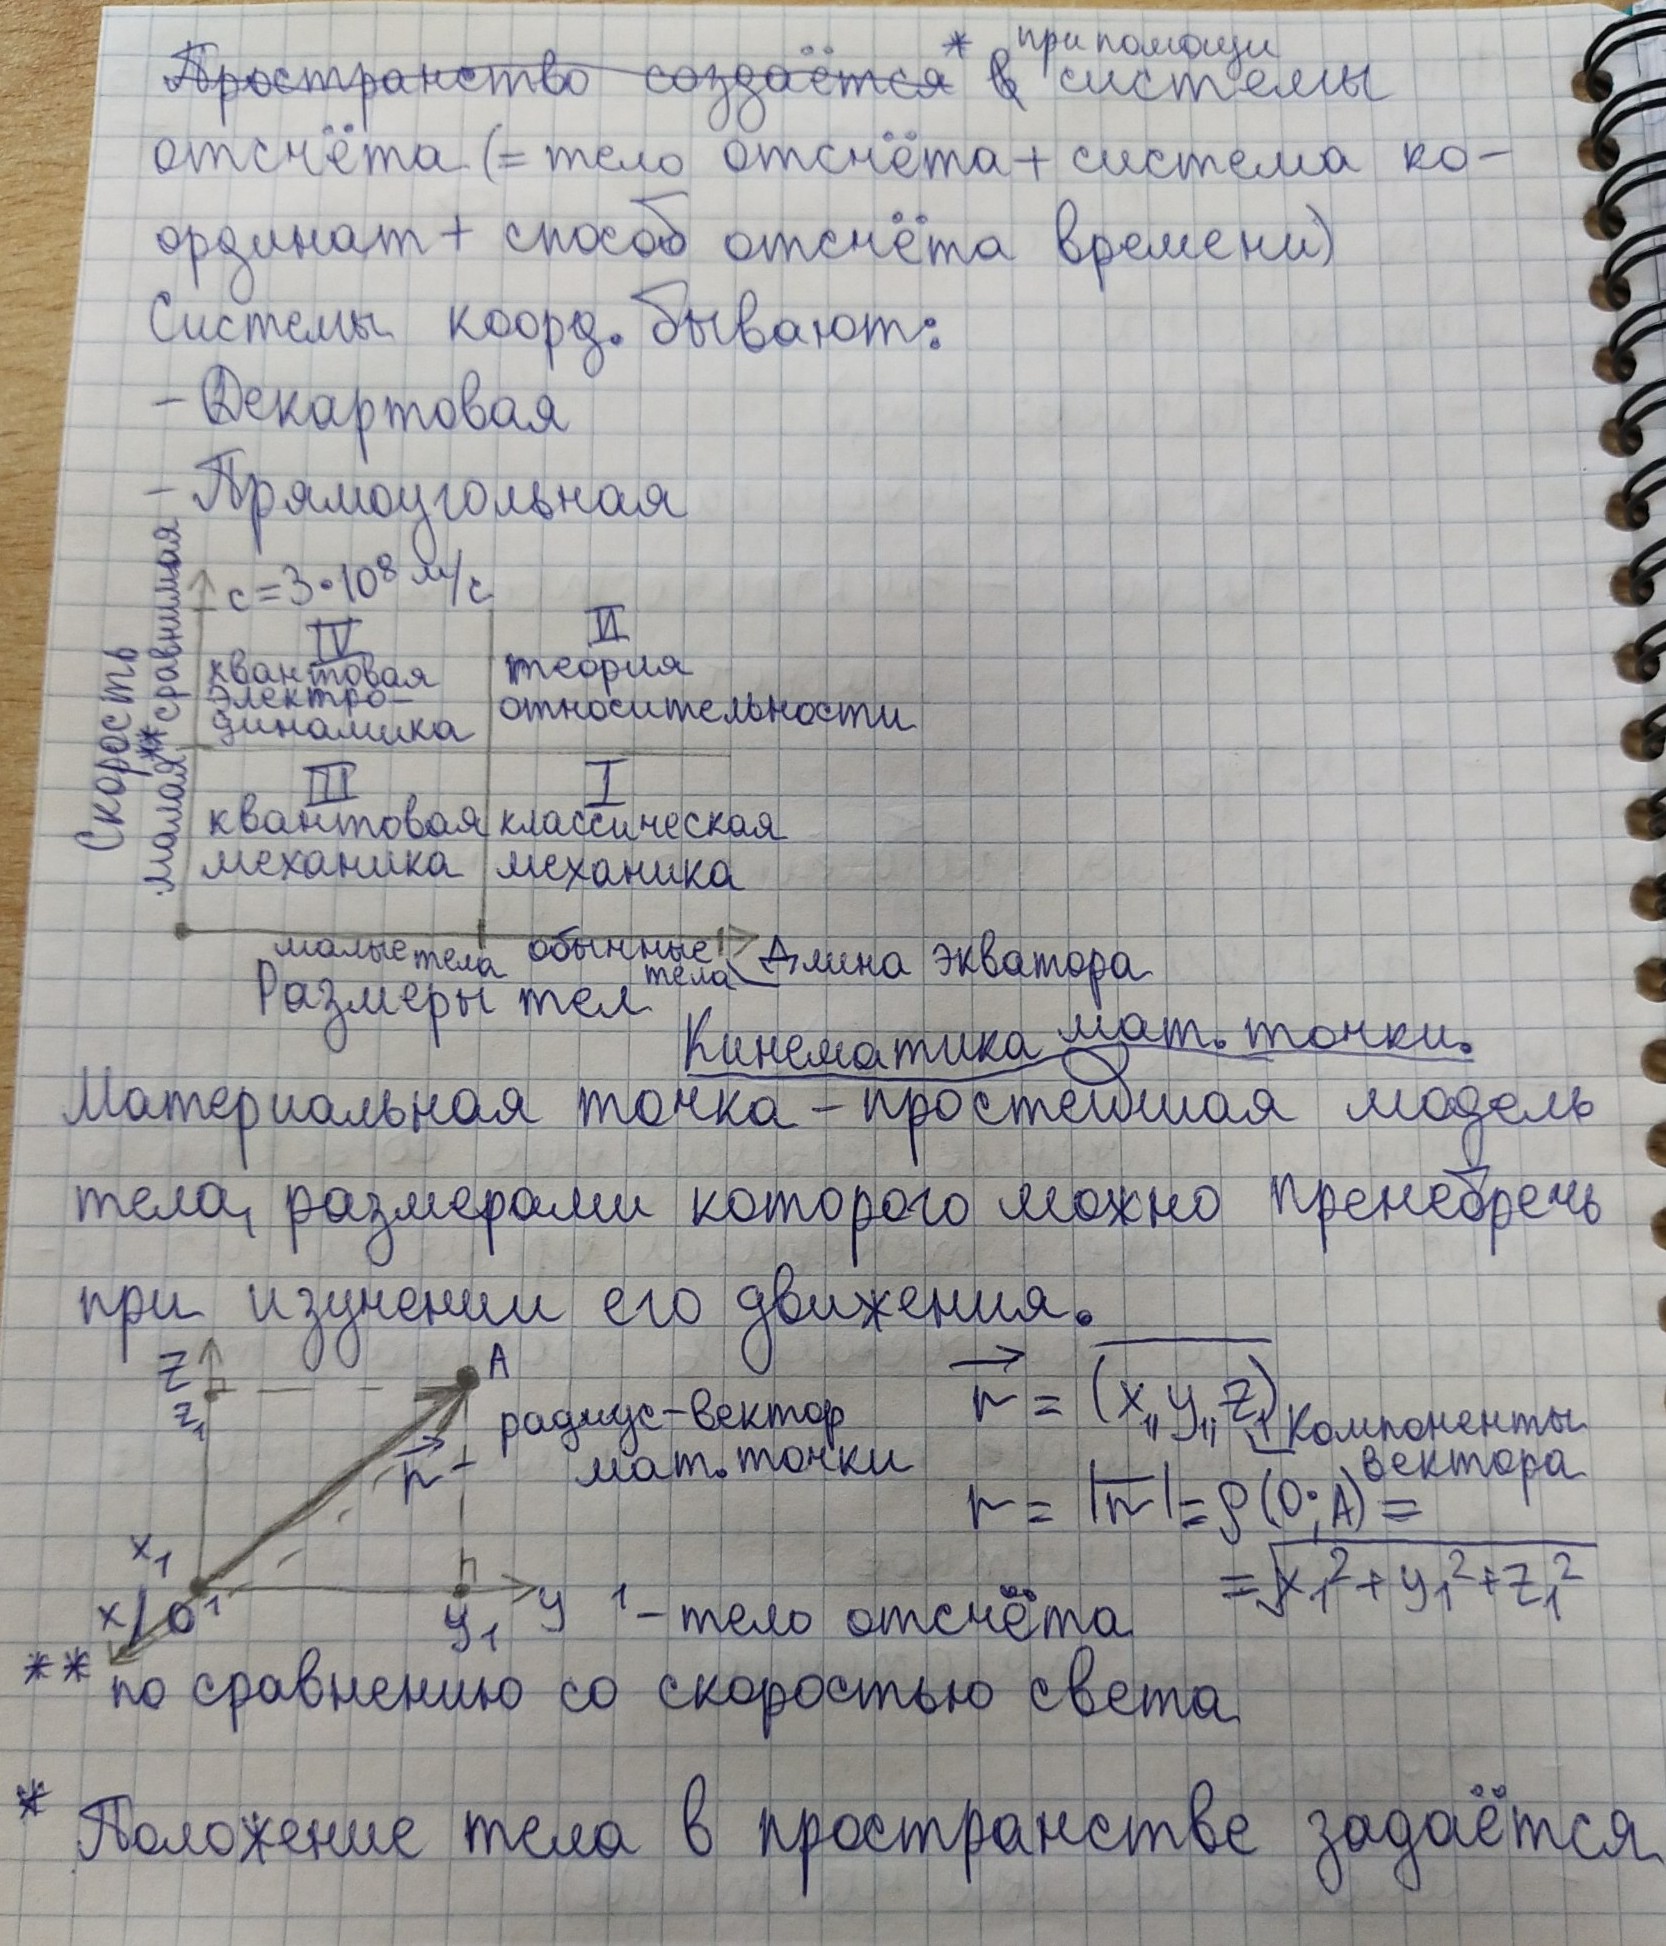 Пространство создаётся * в при помощи системы
отсчёта (= тело отсчёта + система ко-
ординат + способ отсчёта времени)
Системы коорд. бывают:
- Декартовая
- Прямоугольная
c = 3·10⁸ м/с
Скорость
малая** сравнимая
IV
квантовая
электро-
динамика
II
теория
относительности
III
квантовая
механика
I
классическая
механика
малые тела
обычные
тела
Длина экватора
Размеры тел
Кинематика мат. точки.
Материальная точка - простейшая модель
тела, размерами которого можно пренебречь
при изучении его движения.
z
z₁
A
r
радиус-вектор
мат. точки
x₁
x
0¹
y₁
y
r = (x₁, y₁, z₁)
компоненты
вектора
r = |r| = ρ(0; A) =
= √x₁² + y₁² + z₁²
¹ - тело отсчёта
** по сравнению со скоростью света
* Положение тела в пространстве задаётся